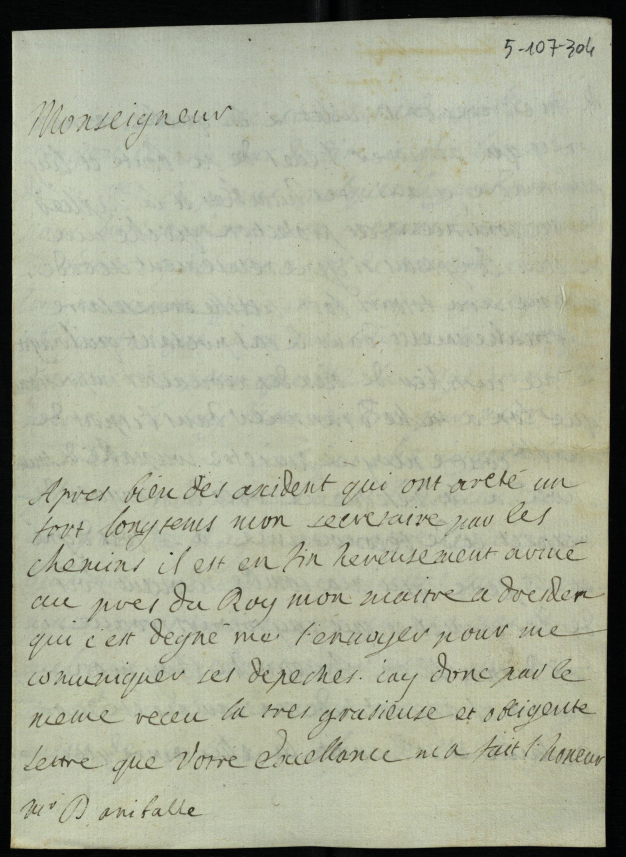 5-107-304
Monseigneur
Apres bien des axident qui ont areté un
fort longtems mon secresaire par les
chemins il est en fin hereusement arivé
au pres du Roy mon maitre a dresden
qui c'est degné me l'envoyer pour me
comuniquer ses depeches. jay donc par le
meme receu la tres grasieuse et obligente
lettre que Votre Excellance m'a fait l'honeur
mr D anifalle